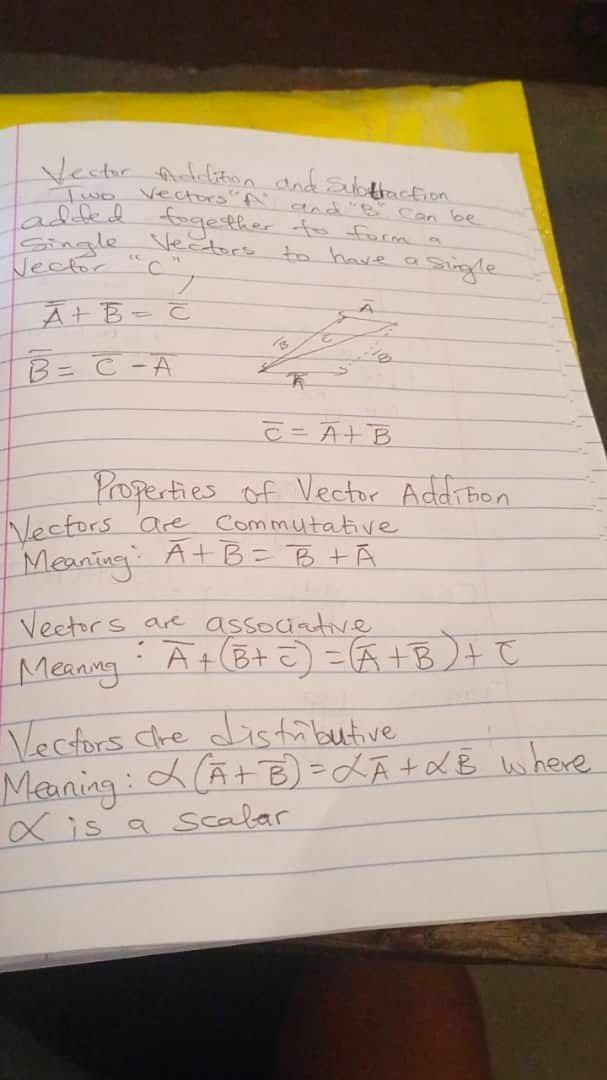 Vector Addition and Subtraction
Two Vectors "A" and "B" can be
added together to form a
Single Vectors to have a single
Vector "C",
A̅ + B̅ = C̅
B̅ = C̅ - A̅
A̅
B̅
C
B
A̅
C̅ = A̅ + B̅
Properties of Vector Addition
Vectors are Commutative
Meaning: A̅ + B̅ = B̅ + A̅
Vectors are associative
Meaning : A̅ + (B̅ + C̅) = (A̅ + B̅) + C̅
Vectors are distributive
Meaning: α(A̅ + B̅) = αA̅ + αB̅ where
α is a scalar